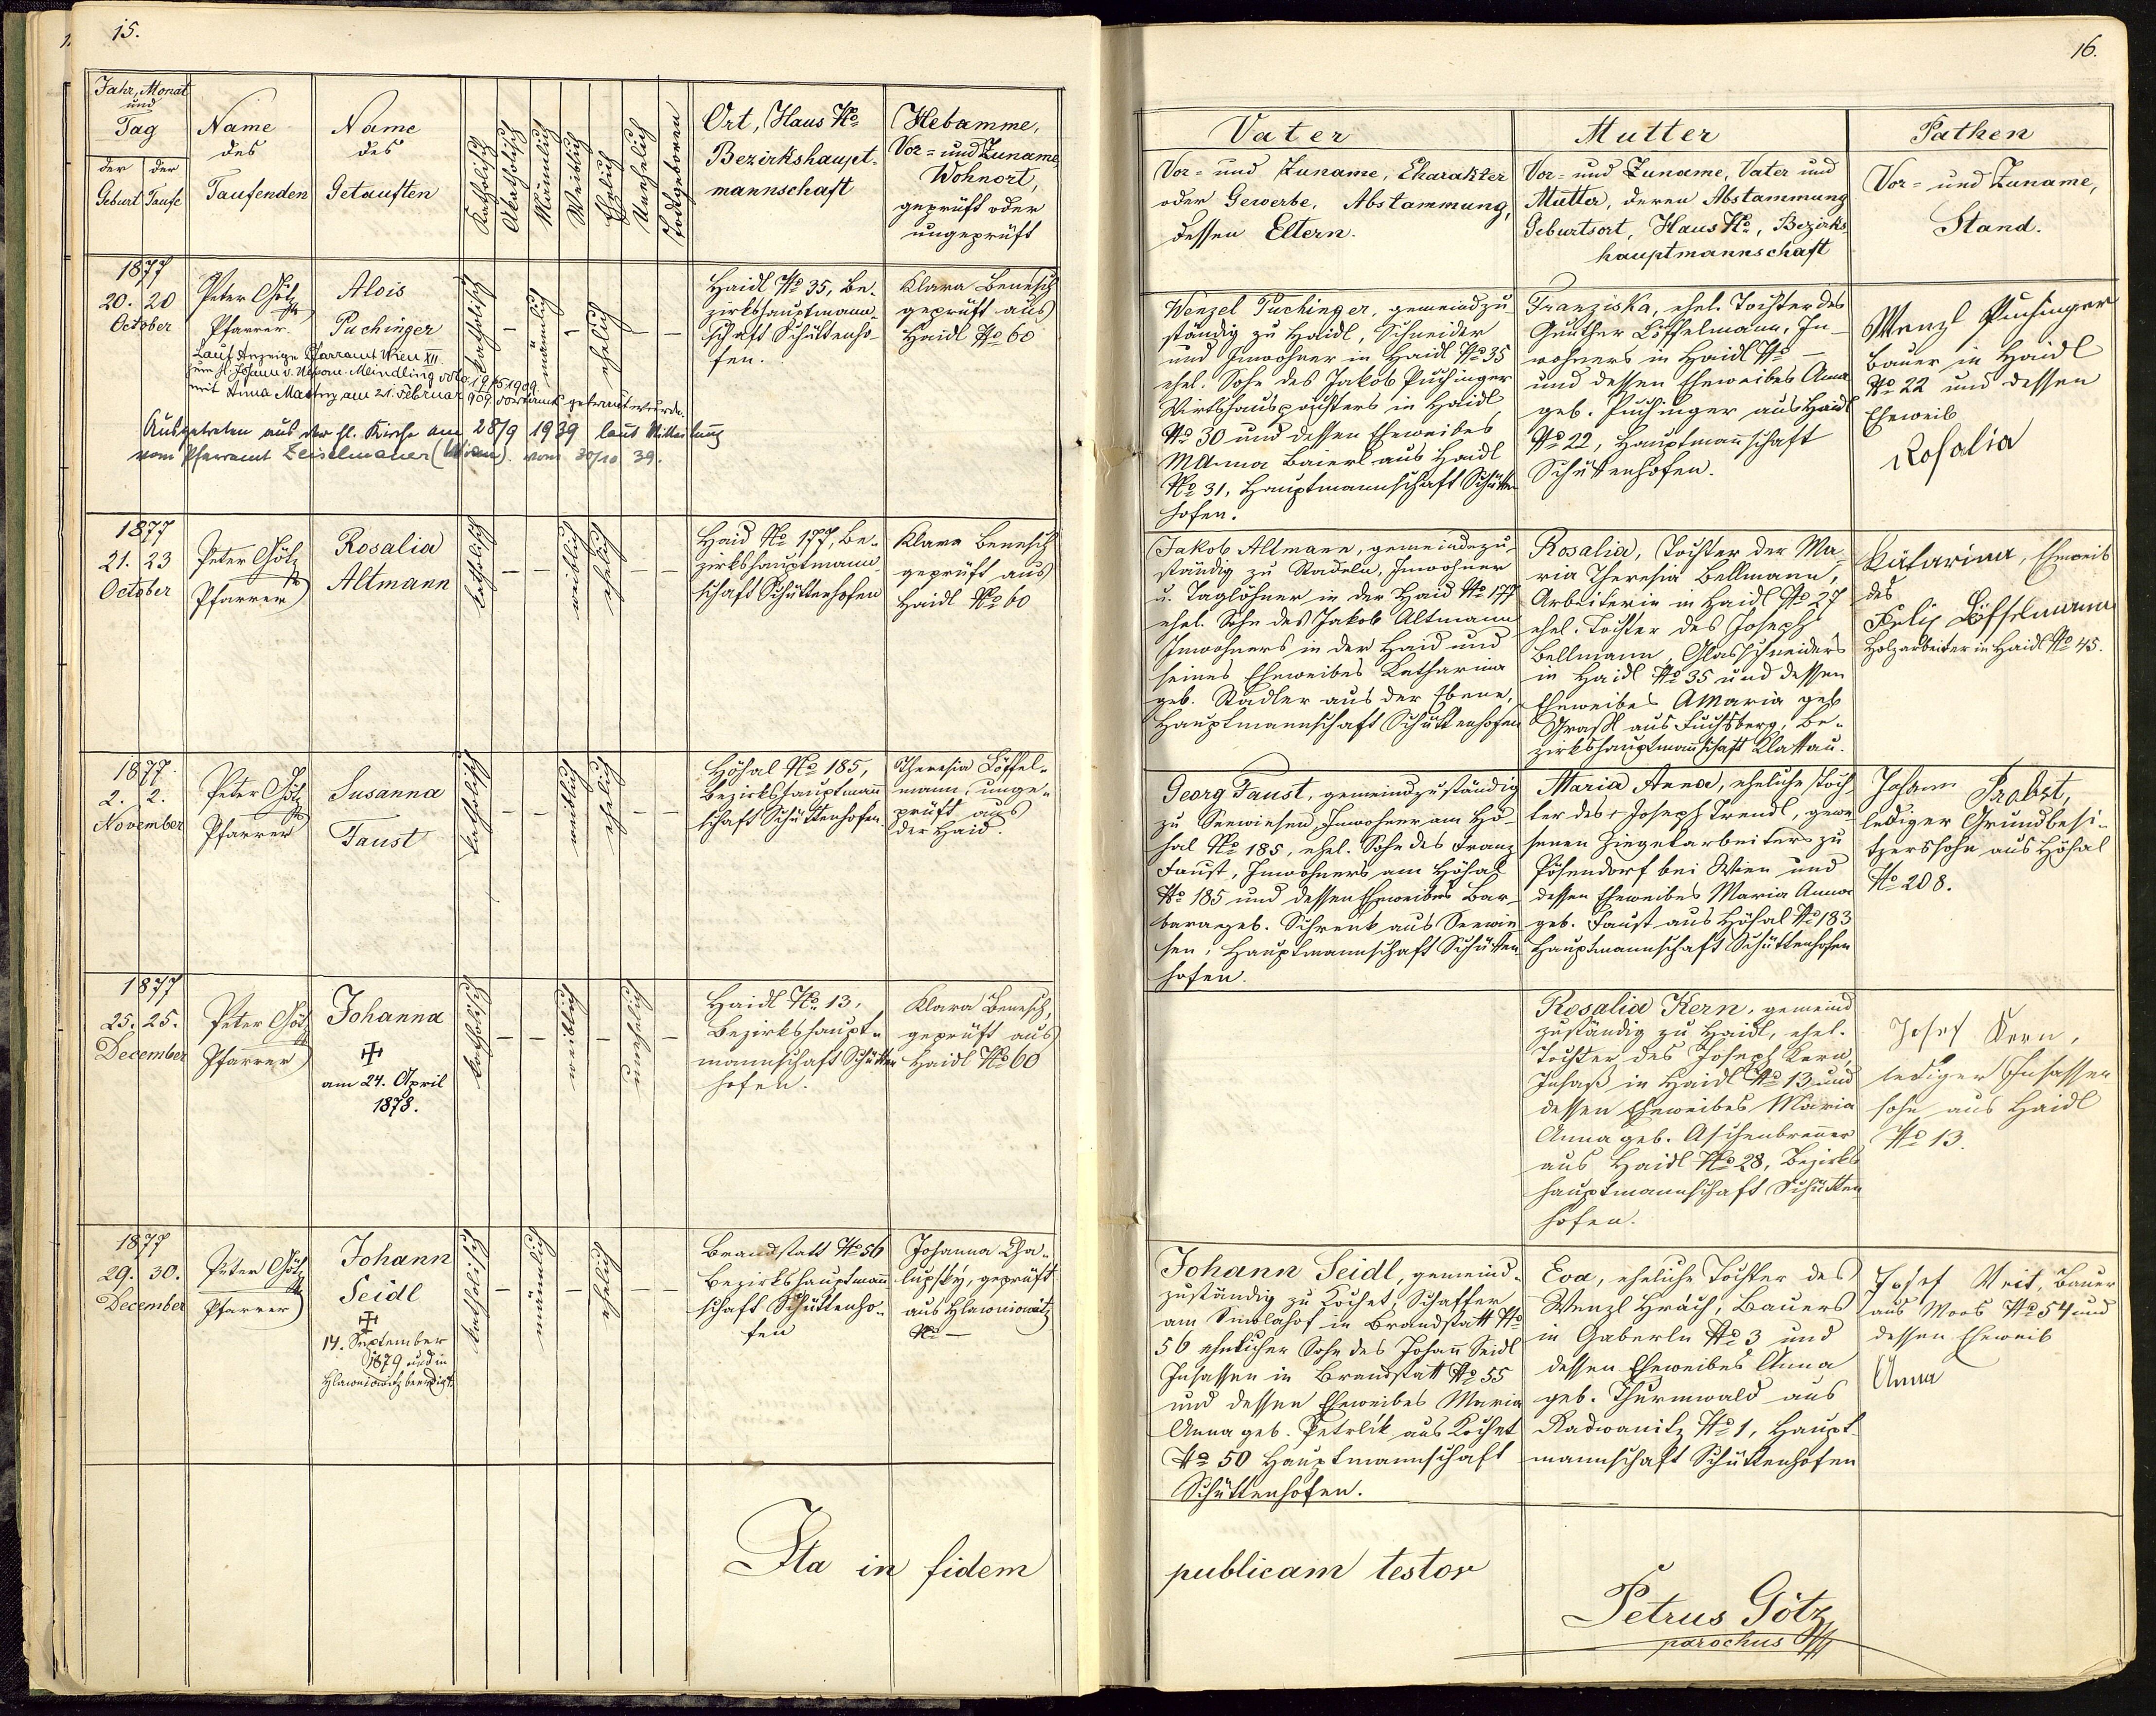 15.
Jahr, Monat
und
Tag
der Geburt
der Taufe
Name
des
Taufenden
Name
des
Getauften
Katholisch
Akatholisch
Männlich
Weiblich
Ehelich
Unehelich
Todtgeboren
Ort, Haus No
Bezirkshaupt-
mannschaft
Hebamme,
Vor- und Zuname
Wohnort,
geprüft oder
ungeprüft
1877
20. 20
October
Peter Götz
Pfarrer.
Alois
Puchinger
katholisch
–
männlich
–
ehelich
–
–
Haidl No 35, Be-
zirkshauptmann-
schaft Schüttenho-
fen.
Klara Benesch
geprüft aus
Haidl No 60
Laut Anzeige Pfarramt Wien XII.
zum hl. Johann v. Nepom. Meindling ddto 19/5 1909
mit Anna am 21. Februar 909 getraut wurde.
Ausgetreten aus der hl. Kirche am 28/9 1939 laut Mitteilung
vom Pfarramt Zeiselmauer (Wien) vom 30/10 39.
1877
21. 23
October
Peter Götz
Pfarrer
Rosalia
Altmann
katholisch
–
–
weiblich
ehelich
–
–
Haid No 177, Be-
zirkshauptmann-
schaft Schüttenhofen
Klara Benesch
geprüft aus
Haidl No 60
1877
2. 2.
November
Peter Götz
Pfarrer
Susanna
Faust
katholisch
–
–
weiblich
ehelich
–
–
Höhal No 185,
Bezirkshauptmann
schaft Schüttenhofen
Theresia Löffel-
mann, unge-
prüft aus
der Haid.
1877
25. 25.
December
Peter Götz
Pfarrer
Johanna
am 24. April
1878.
katholisch
–
–
weiblich
–
unehelich
–
Haidl No 13,
Bezirkshaupt-
mannschaft Schütten
hofen.
Klara Benesch,
geprüft aus
Haidl No 60
1877
29. 30.
December
Peter Götz
Pfarrer
Johann
Seidl
14. September
1879 und in
Hlawniowitz beerdigt.
katholisch
–
männlich
–
ehelich
–
–
Brandstatt No 56
Bezirkshauptmann
schaft Schüttenho-
fen
Johanna Cha-
lupský, geprüft
aus Hlawniowitz
No –
Ita in fidem
16.
Vater
Vor- und Zuname, Charakter
oder Gewerbe, Abstammung,
dessen Eltern.
Mutter
Vor- und Zuname, Vater und
Mutter, deren Abstammung
Geburtsort, Haus No, Bezirks
hauptmannschaft
Pathen
Vor- und Zuname,
Stand.
Wenzel Puchinger, gemeindzu
ständig zu Haidl, Schneider
und Inwohner in Haidl No 35
ehel. Sohn des Jakob Puchinger
Wirtshauspächters in Haidl
No 30 und dessen Eheweibes
MAnna Baierl aus Haidl
No 31, Hauptmannschaft Schütten
hofen.
Franziska, ehel. Tochter des
Günther Löffelmann, In-
wohners in Haidl No –
und dessen Eheweibes Anna
geb. Puchinger aus Haidl
No 22, Hauptmannschaft
Schüttenhofen.
Wenzl Puchinger
Bauer in Haidl
No 22 und dessen
Eheweib
Rosalia
Jakob Altmann, gemeindezu-
ständig zu Stadeln, Inwohner
u. Taglöhner in der Haid No 177
ehel. Sohn des Jakob Altmann
Inwohners in der Haid und
seines Eheweibes Katharina
geb. Stadler aus der Ebene,
Hauptmannschaft Schüttenhofen
Rosalia, Tochter der Ma-
ria Theresia Bellmann,
Arbeiterin in Haidl No 27
ehel. Tochter des Joseph
Bellmann, Glasschneiders
in Haidl No 35 und dessen
Eheweibes AMaria geb
Graßl aus Fuchsberg, Be-
zirkshauptmannschaft Klattau.
Katarina, Eheweib
des
Felix Löffelmann
Holzarbeiter in Haidl No 45.
Georg Faust, gemeindzuständig
zu Seewiesen, Inwohner am Hö-
hal No 185, ehel. Sohn des Franz
Faust, Inwohners am Höhal
No 185 und dessen Eheweibes Bar-
bara geb. Schrenk aus Seewie-
sen, Hauptmannschaft Schütten
hofen.
Maria Anna, eheliche Toch
ter des Joseph Trendl, gewe
senen Ziegelarbeiters zu
Pösendorf bei Wien und
dessen Eheweibes Maria Anna
geb. Faust aus Höhal No 183
Hauptmannschaft Schüttenhofen
Johann Probst,
lediger Grundbesi-
tzerssohn aus Höhal
No 208.
Rosalia Kern, gemeind
zuständig zu Haidl, ehel.
Tochter des Joseph Kern,
Insaß in Haidl No 13 und
dessen Eheweibes Maria
Anna geb. Aschenbrenner
aus Haidl No 28, Bezirks
hauptmannschaft Schütten
hofen.
Josef Kern,
lediger Insassen
sohn aus Haidl
No 13.
Johann Seidl, gemeind-
zuständig zu Kochet, Schaffer
am in Brandstatt No
56 ehelicher Sohn des Johann Seidl
Insassen in Brandstatt No 55
und dessen Eheweibes Maria
Anna geb. Petrlik aus Kochet
No 50 Hauptmannschaft
Schüttenhofen.
Eva, eheliche Tochter des
Wenzl Hrach, Bauers
in Gaberln No 3 und
dessen Eheweibes Anna
geb. Thurmwald aus
Radwanitz No 1, Haupt-
mannschaft Schüttenhofen
Josef Veit, Bauer
aus Moos No 54 und
dessen Eheweib
Anna
publicam testor
Petrus Götz
parochus